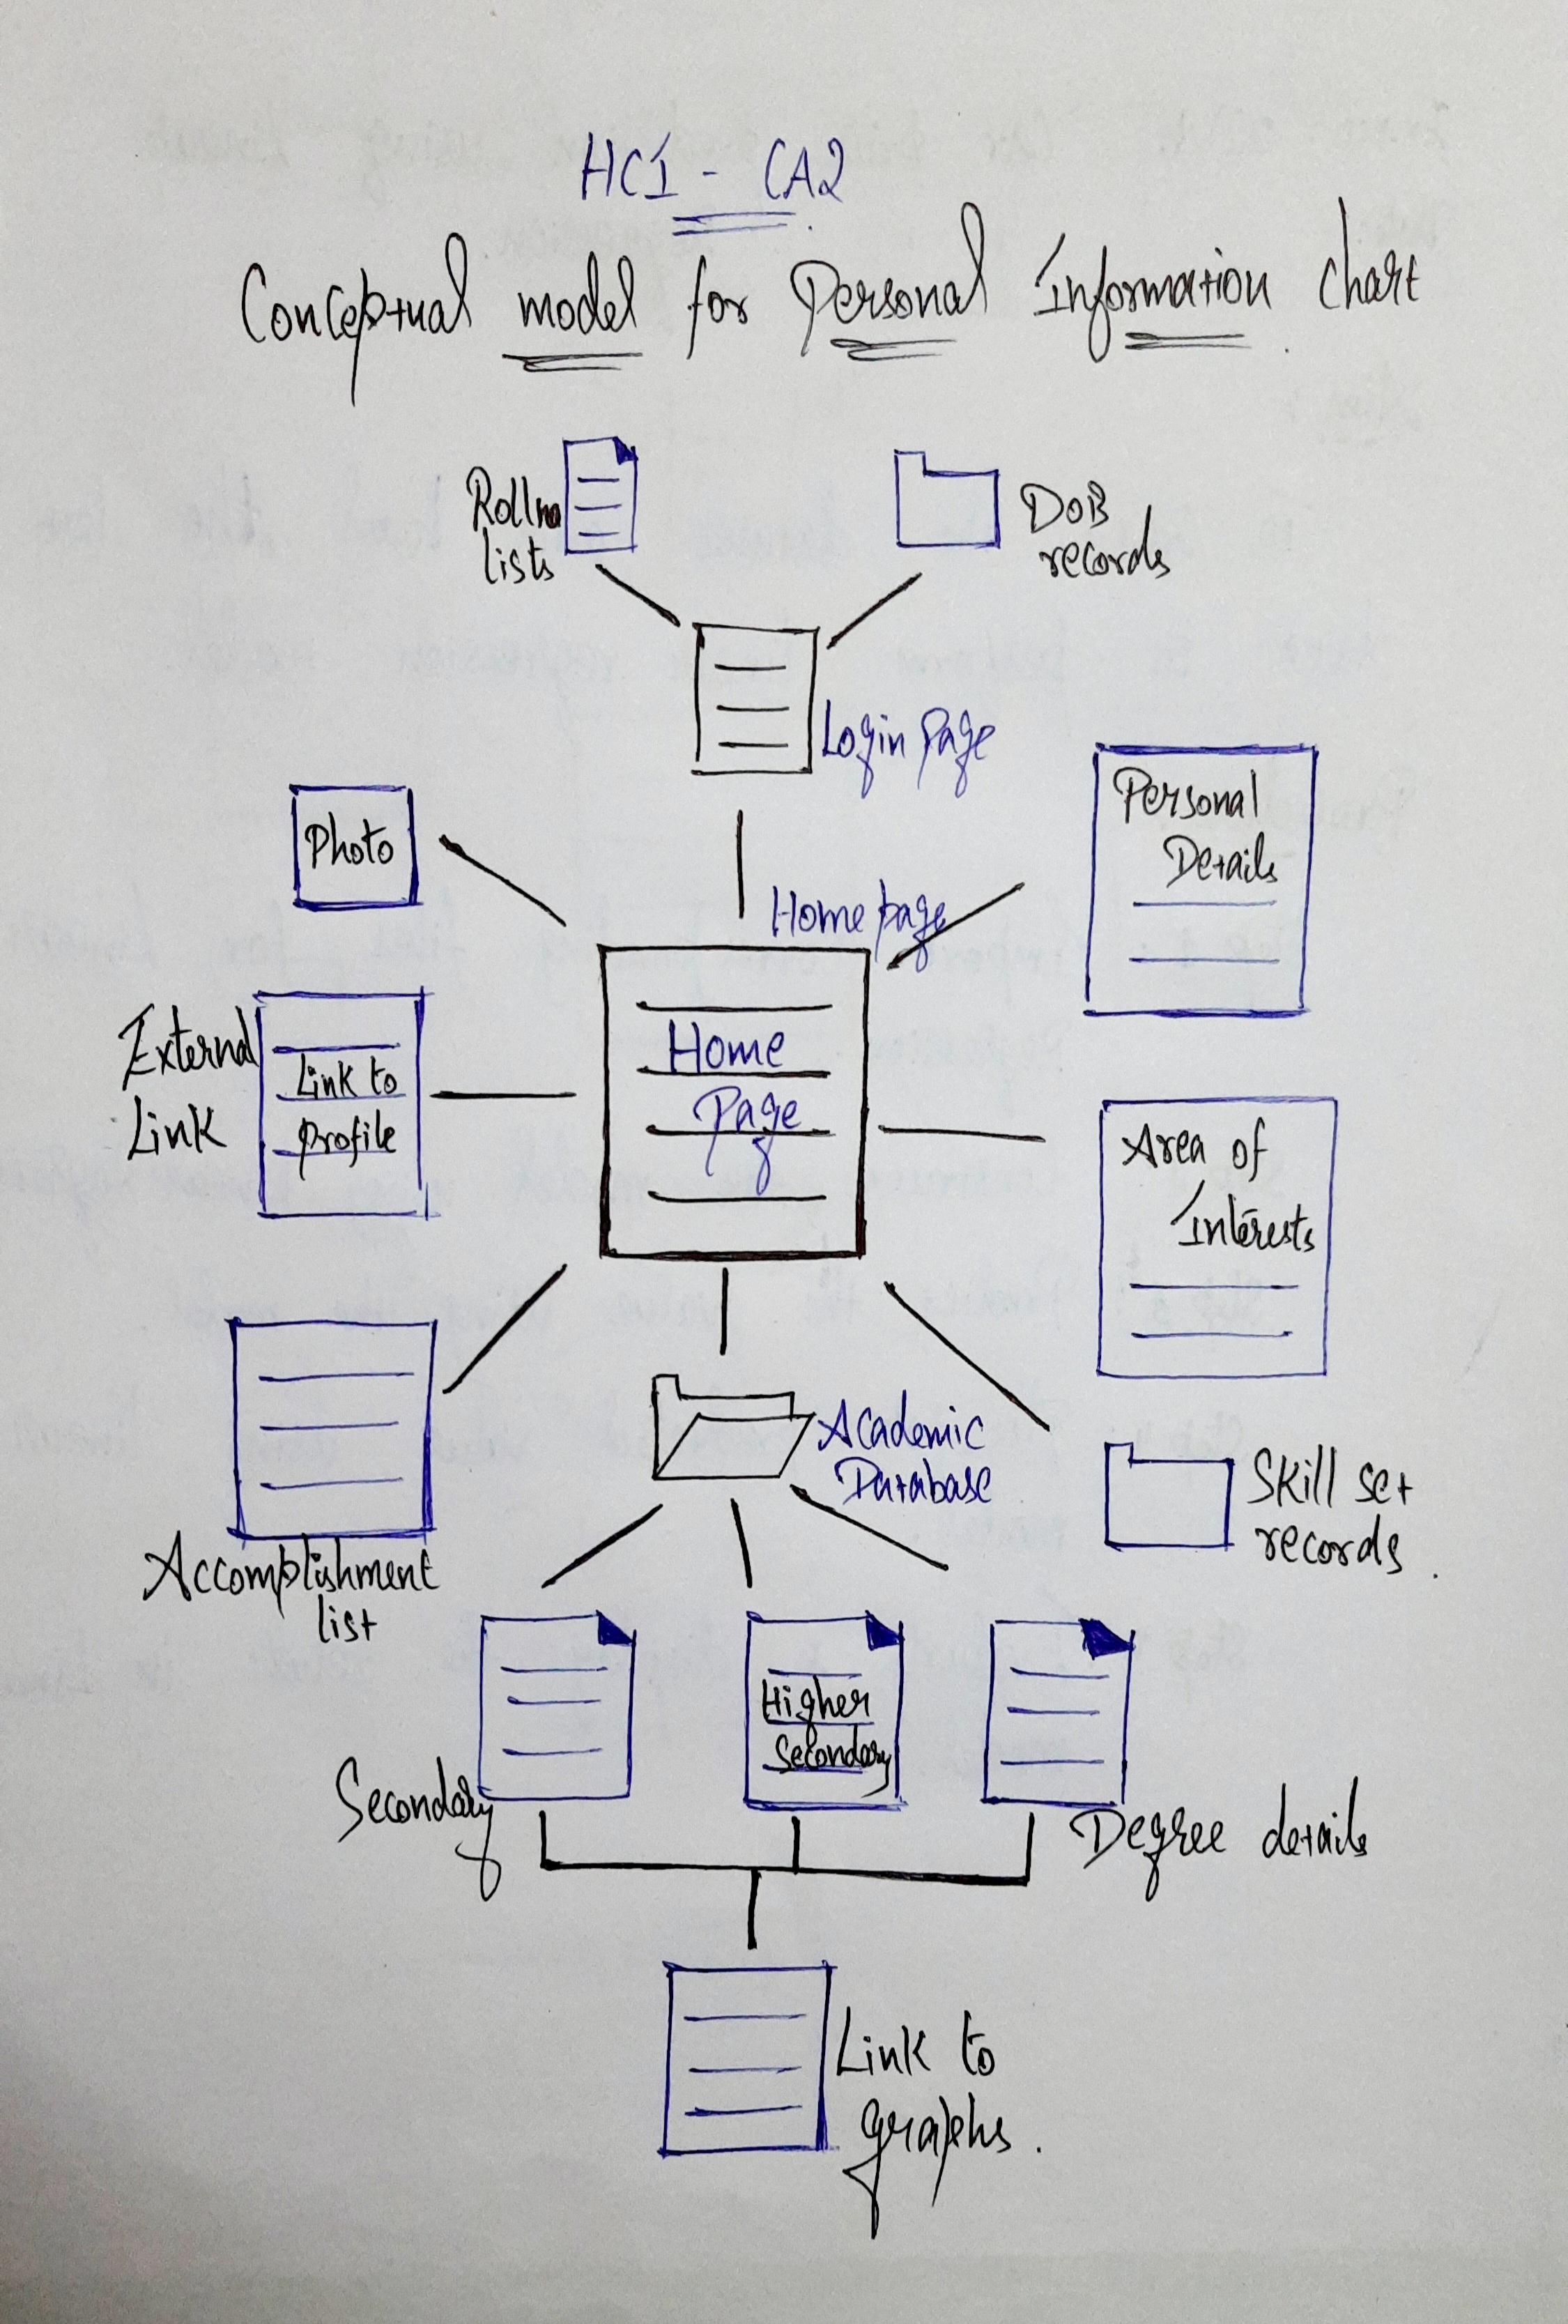 HCI - CA2
Conceptual model for Personal Information chart
Rollno
lists
DOB
records
Login Page
Personal
Details
Photo
Home page
External
Link
Link to
profile
Home
Page
Area of
Interests
Academic
Database
Skill set
records.
Accomplishment
list
Higher
Secondary
Secondary
Degree details
Link to
graphs.